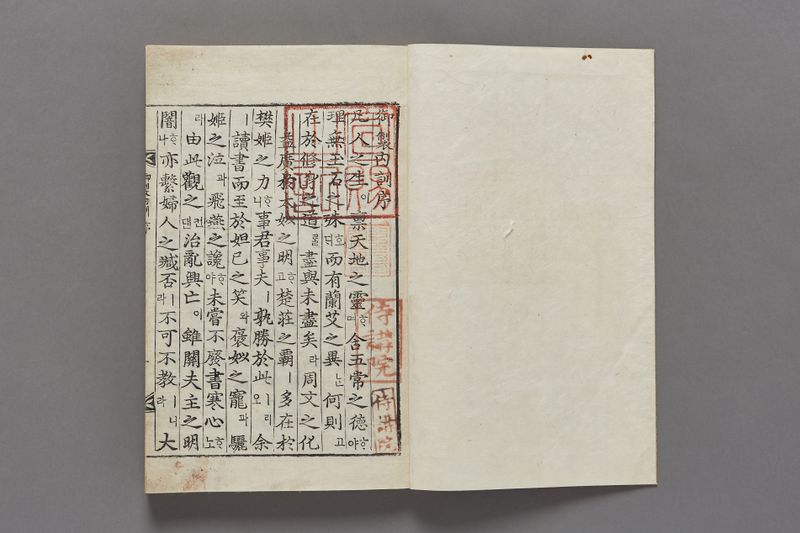 御製內訓序
凡人之生이 稟天地之靈ᄒᆞ며 含五常之德ᄒᆞ야
理無玉石之殊호ᄃᆡ 而有蘭艾之異ᄂᆞᆫ 何則고
在於修身之道ᄅᆞᆯ 盡與未盡矣라 周文之化
益廣於太姒之明ᄒᆞ고 楚莊之霸ㅣ 多在於
樊姬之力ᄒᆞ니 事君事夫ㅣ 孰勝於此ㅣ리오 余
ㅣ 讀書而至於妲己之笑와 褒姒之寵과 驪
姬之泣과 飛燕之讒ᄒᆞ야 未嘗不廢書寒心ᄒᆞ노
라 由此觀之컨댄 治亂興亡이 雖關夫主之明
闇ᄒᆞ나 亦繫婦人之臧否ㅣ라 不可不教ㅣ니라 大
侍講院
侍講院